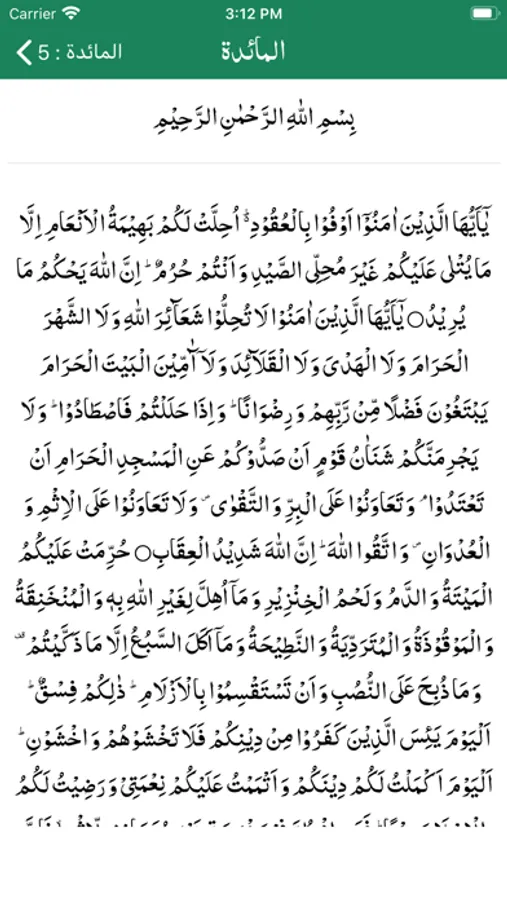 Carrier 3:12 PM
المائدة : 5
المآئدة
بِسْمِ اللّٰهِ الرَّحْمٰنِ الرَّحِيْمِ
يٰۤاَيُّهَا الَّذِيْنَ اٰمَنُوْۤا اَوْفُوْا بِالْعُقُوْدِ ؕ اُحِلَّتْ لَكُمْ بَهِيْمَةُ الْاَنْعَامِ اِلَّا
مَا يُتْلٰى عَلَيْكُمْ غَيْرَ مُحِلِّى الصَّيْدِ وَاَنْتُمْ حُرُمٌ ؕ اِنَّ اللّٰهَ يَحْكُمُ مَا
يُرِيْدُ○ يٰۤاَيُّهَا الَّذِيْنَ اٰمَنُوْا لَا تُحِلُّوْا شَعَآئِرَ اللّٰهِ وَلَا الشَّهْرَ
الْحَرَامَ وَلَا الْهَدْىَ وَلَا الْقَلَآئِدَ وَلَاۤ آٰمِّيْنَ الْبَيْتَ الْحَرَامَ
يَبْتَغُوْنَ فَضْلًا مِّنْ رَّبِّهِمْ وَرِضْوَانًا ؕ وَاِذَا حَلَلْتُمْ فَاصْطَادُوْا ؕ وَلَا
يَجْرِمَنَّكُمْ شَنَاٰنُ قَوْمٍ اَنْ صَدُّوْكُمْ عَنِ الْمَسْجِدِ الْحَرَامِ اَنْ
تَعْتَدُوْا ۘ وَتَعَاوَنُوْا عَلَى الْبِرِّ وَالتَّقْوٰى ۪ وَلَا تَعَاوَنُوْا عَلَى الْاِثْمِ وَ
الْعُدْوَانِ ۪ وَاتَّقُوا اللّٰهَ ؕ اِنَّ اللّٰهَ شَدِيْدُ الْعِقَابِ○ حُرِّمَتْ عَلَيْكُمُ
الْمَيْتَةُ وَالدَّمُ وَلَحْمُ الْخِنْزِيْرِ وَمَاۤ اُهِلَّ لِغَيْرِ اللّٰهِ بِهٖ وَالْمُنْخَنِقَةُ
وَالْمَوْقُوْذَةُ وَالْمُتَرَدِّيَةُ وَالنَّطِيْحَةُ وَمَاۤ اَكَلَ السَّبُعُ اِلَّا مَا ذَكَّيْتُمْ ۟
وَمَا ذُبِحَ عَلَى النُّصُبِ وَاَنْ تَسْتَقْسِمُوْا بِالْاَزْلَامِ ؕ ذٰلِكُمْ فِسْقٌ ؕ
اَلْيَوْمَ يَئِسَ الَّذِيْنَ كَفَرُوْا مِنْ دِيْنِكُمْ فَلَا تَخْشَوْهُمْ وَاخْشَوْنِ ؕ
اَلْيَوْمَ اَكْمَلْتُ لَكُمْ دِيْنَكُمْ وَاَتْمَمْتُ عَلَيْكُمْ نِعْمَتِىْ وَرَضِيْتُ لَكُمُ